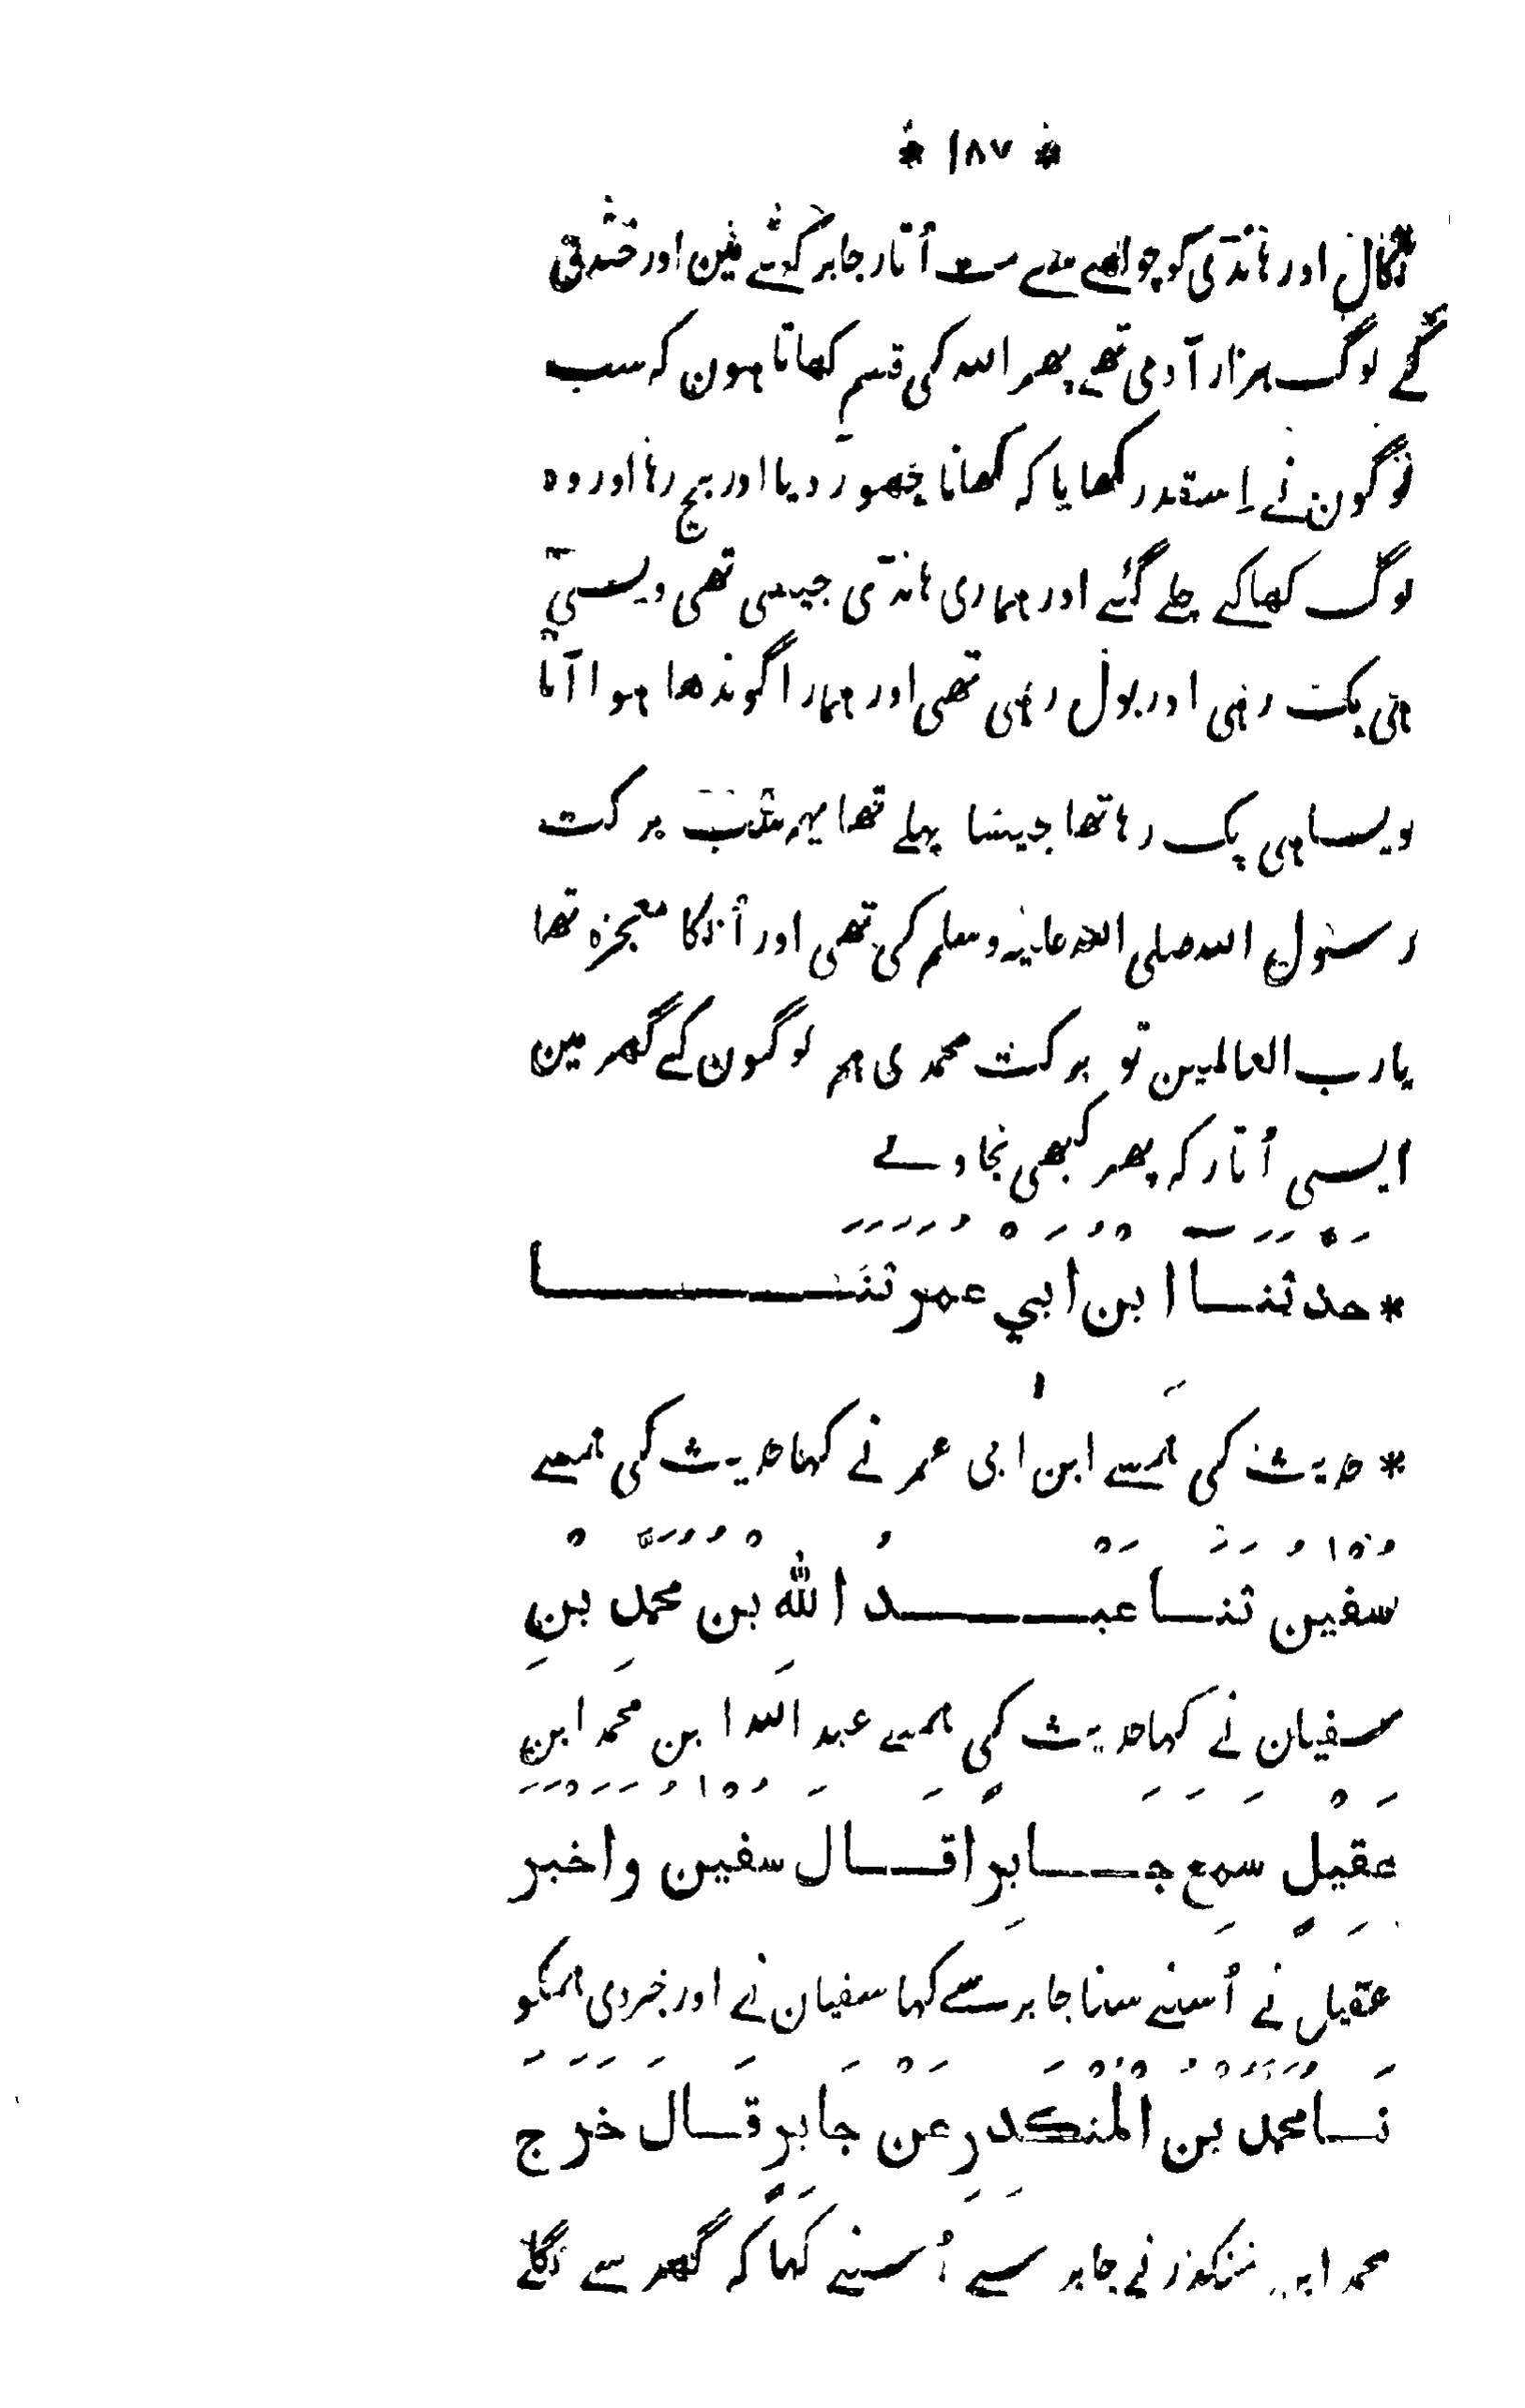 * ١٨٧ *
نکال اور ہانڈی کو چولھے سے مت اُتار جابر کہتے ہین اور خندق
کے لوگ ہزار آدمی تھے پھر اللہ کی قسم کھاتا ہون کہ سب
لوگون نے اِسقدر کھایا کہ کھانا چھوڑ دیا اور بچ رہا اور وہ
لوگ کھاکے چلے گئے اور ہماری ہانڈی جیسی تھی ویسی
ہی پک رہی اور بول رہی تھی اور ہمارا گوندھا ہوا آٹا
ویسا ہی پک رہا تھا جیسا پہلے تھا یہہ سب برکت
رسول اللہ صلی اللہ علیہ وسلم کی تھی اور اُنکا معجزہ تھا
یارب العالمین تو برکت محمدی ہم لوگون کے گھر مین
ایسی اُتار کہ پھر کبھی نجاوے
* حَدَّثَنَا ابْنُ اَبِي عُمَرَ ثَنَا
* حدیث کی ہمسے ابن ابی عمر نے کہا حدیث کی ہمسے
سُفْيٰنُ ثَنَا عَبْدُ اللّٰهِ بْنُ مُحَمَّدِ بْنِ
سفیان نے کہا حدیث کی ہمسے عبد اللہ ابن محمد ابن
عَقِيْلٍ سَمِعَ جَابِرًا قَالَ سُفْيٰنُ وَاَخْبَرَ
عقیل نے اُسنے سنا جابر سے کہا سفیان نے اور خبر دی ہمکو
نَا مُحَمَّدُ بْنُ الْمُنْكَدِرِ عَنْ جَابِرٍ قَالَ خَرَجَ
محمد ابن منکدر نے جابر سے اُسنے کہا کہ گھر سے نکلے